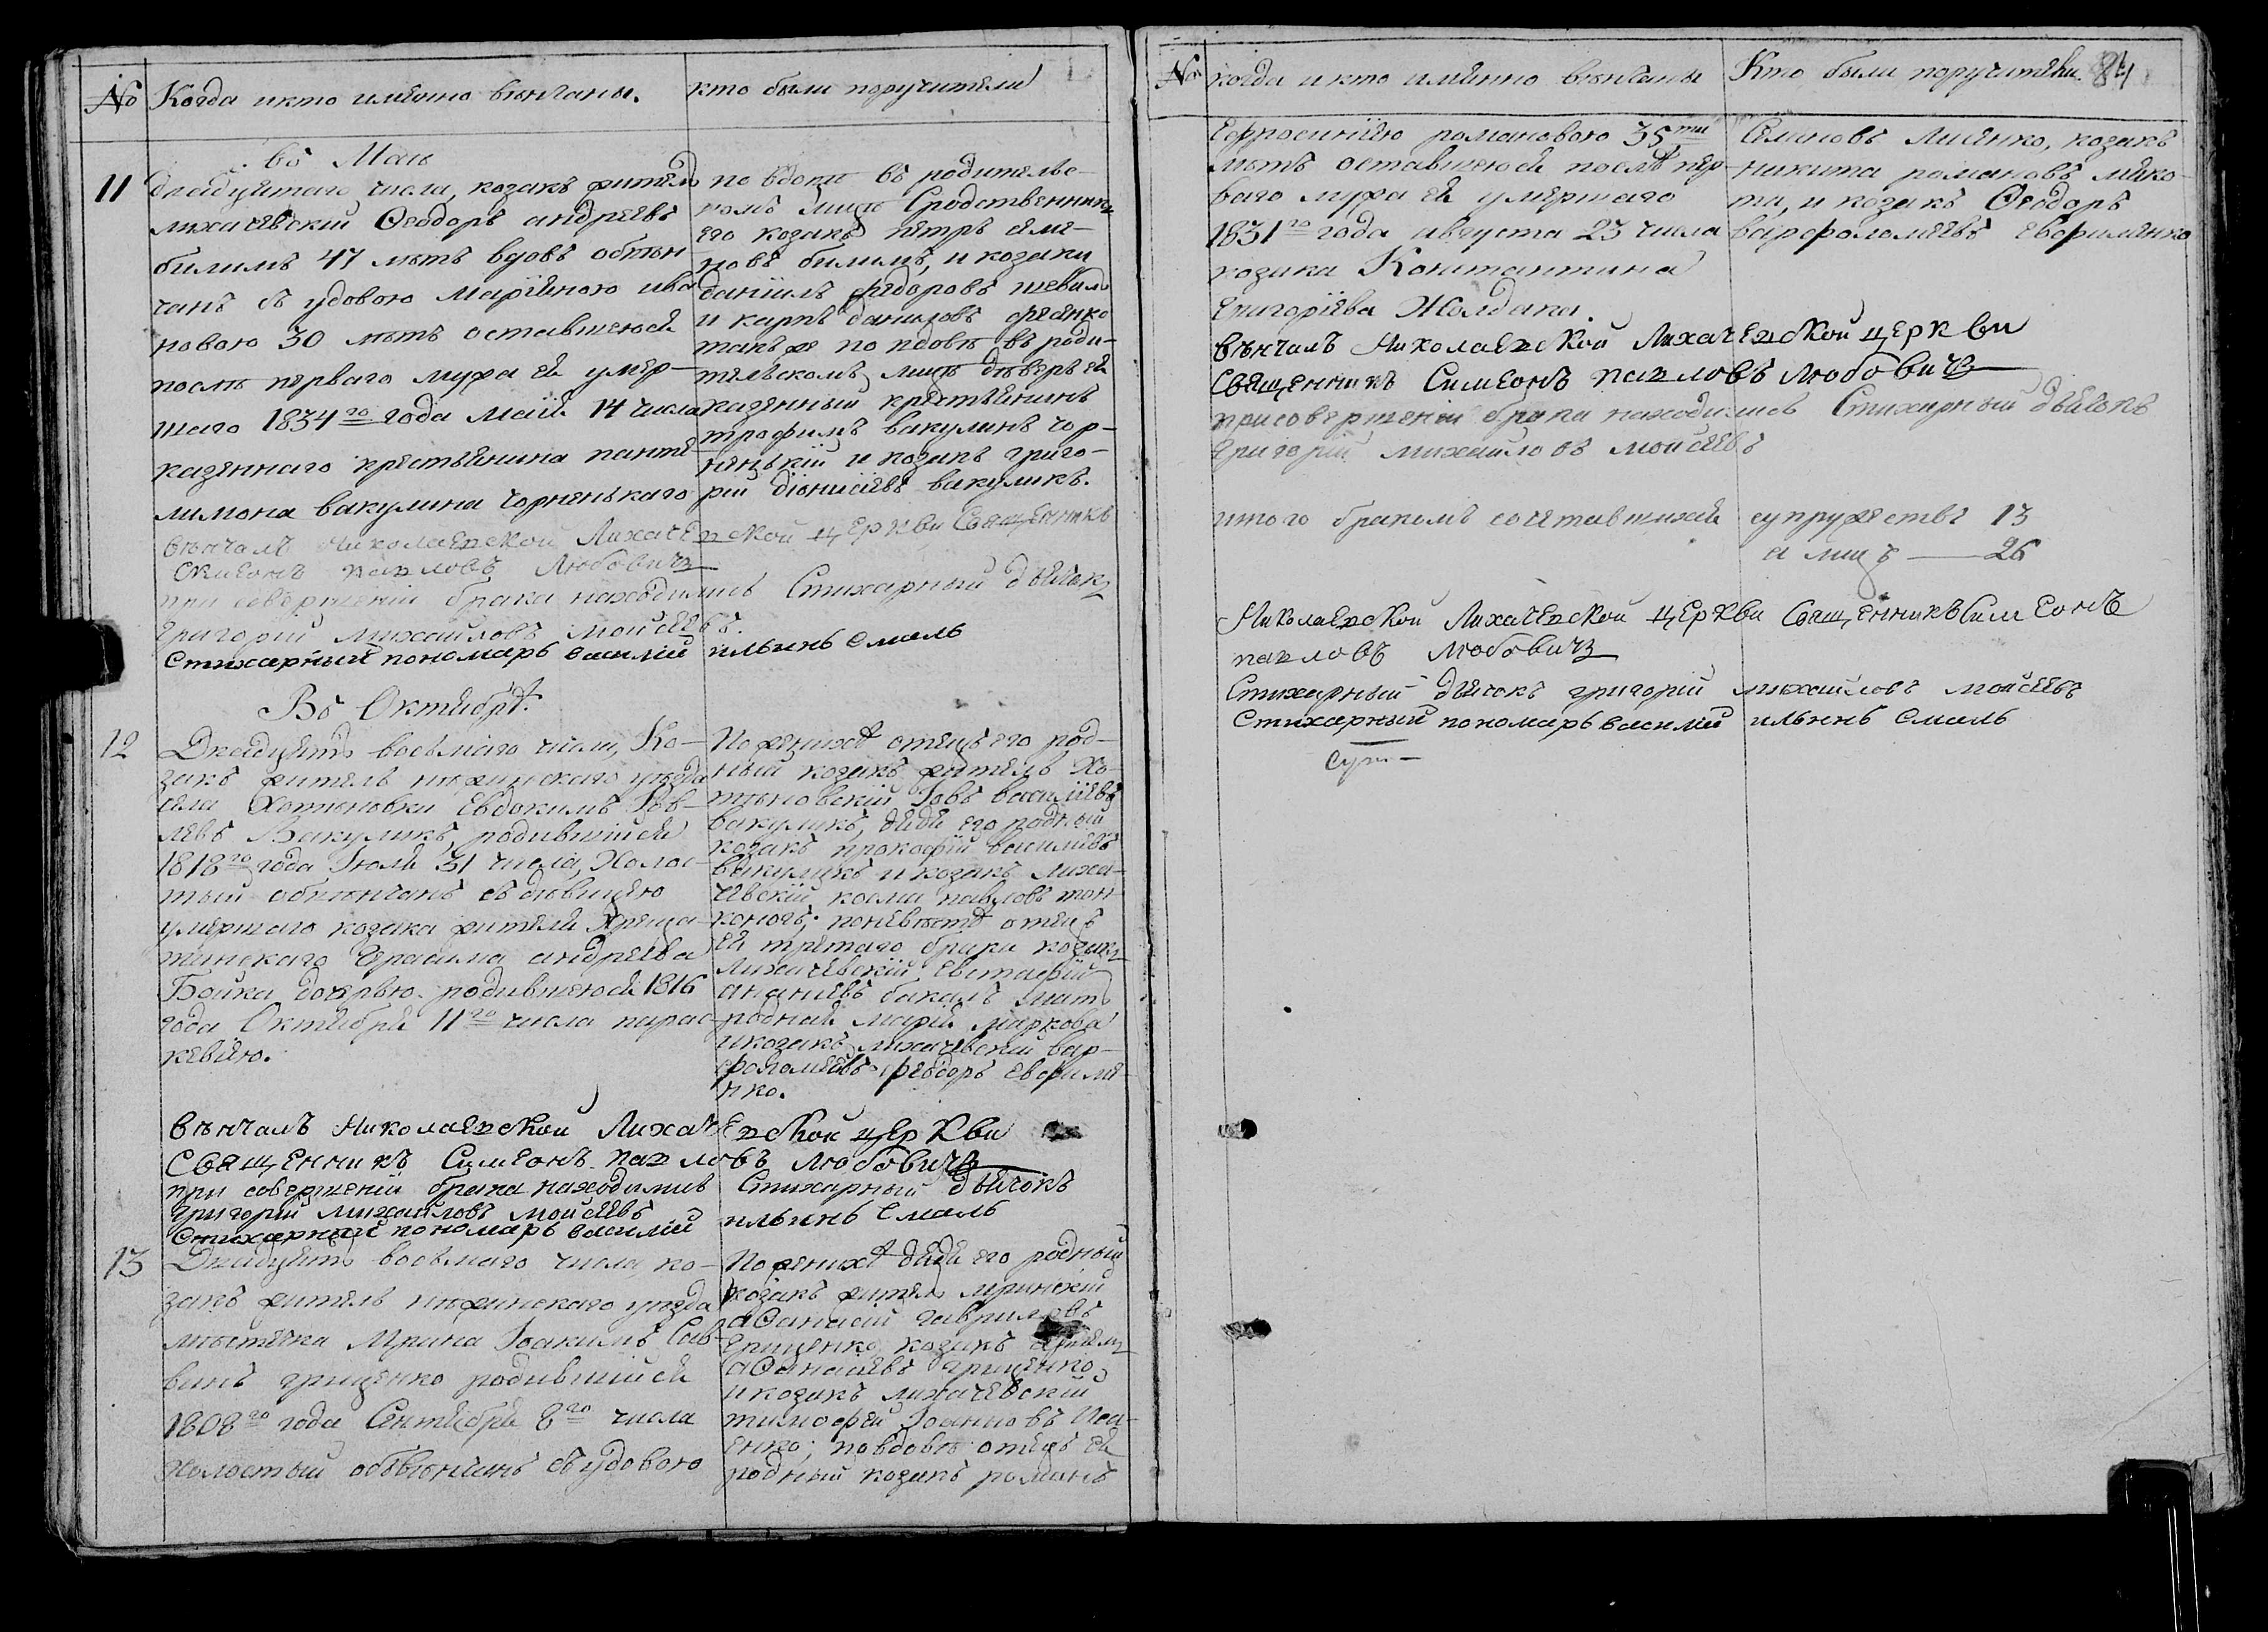 № Когда и кто имѣнно вѣнчаны.
кто были поручители
въ Маи
11
двадцятаго числа, козакъ жител
лихачевскій Ѳеодоръ андреевъ
билимъ 47 лѣтъ вдовъ обвѣн
чанъ съ удовою Маріеною ива
новою 30 лѣтъ оставшеюся
послѣ перваго мужа ея умер-
шаго 1834го года маія 14 числа
казеннаго крестьянина панте
лимона вакулина чорненькаго
по вдовѣ въ родительс-
комъ лицѣ Сродственники
его козакъ петръ семе-
новъ билимъ, и козаки
даніилъ федоровъ шевил
и карпъ даниловъ фесенко
такъ же по вдовѣ въ роди-
тельскомъ лицѣ дѣверь ея
казенный крестьянинъ
трофимъ вакулинъ чор-
ненькій и козакъ григо-
рій діонисіевъ вакуликъ.
вѣнчалъ Николаевской Лихачевской церкви Священникъ
Симеонъ павловъ Любовичъ
при совершеніи брака находились Стихарный дьячокъ
григорій михайловъ мойсеевъ.
Стихарный пономарь василій ильинъ Смаль
Въ Октябрѣ.
12
Двадцять восьмаго числа, Ко-
закъ житель нѣжинскаго уѣзда
села Хотѣновки Евдокимъ Іов-
левъ Вакуликъ, родившійся
1818го года Іюля 31 числа, Холос-
тый обвѣнчанъ съ дѣвицею
умершаго козака жителя Хреща-
тинскаго Герасима андреева
Бойка дочерью родившеюся 1816
года Октября 11го числа парас-
кевіею.
По женихѣ отецъ его род-
ный козакъ житель Хо-
тѣновскій Іовъ василіевъ
вакуликъ, дядя его родный
козакъ прокофій василіевъ
вакуликъ и козакъ лиха-
чевскій косма павловъ тон-
коногъ; по невѣстѣ отецъ
ея третаго брака козакъ
Лихачевскій Евстафій
ананіевъ бакалъ мать
родная марія маркова
и козакъ лихачевскій вар-
фоломѣевъ феодоръ евфиме-
нко.
вѣнчалъ Николаевской Лихачевской церкви
Священникъ Симеонъ павловъ Любовичъ
при совершеніи брака находились Стихарный дьячокъ
григорій михайловъ мойсеевъ
Стихарный пономарь василій ильинъ Смаль
13
Двадцять восьмаго числа ко-
закъ житель нѣжинскаго уѣзда
мѣстечка Мрина Іоакимъ Сав-
винъ грищенко родившійся
1808го года Сентября 8го числа
холостый обвѣнчанъ съ удовою
По женихѣ дядя его родный
козакъ жител мринскій
аѲанасій гавриловъ
Грищенко, козакъ
аѲанасіевъ грищенко
и козакъ лихачевскій
тимофей Іоанновъ Иса-
енко; по вдовѣ отецъ ея
родный козакъ романъ
№ когда и кто имѣнно вѣнчаны
Кто были поручители. 84
Ефросиніею романовою 35ти
лѣтъ оставшеюся послѣ пер-
ваго мужа ея умершаго
1831го года августа 23 числа
козака Константина
Григоріева Жолдака.
Семеновъ Лисенко, козакъ
никита романовъ мико-
та, и козакъ Ѳеодоръ
варфоломѣевъ Евфименко
вѣнчалъ Николаевской Лихачевской церкви
Священникъ Симеонъ павловъ Любовичъ
при совершеніи брака находились Стихарный дьячокъ
григорій михайловъ мойсеевъ
итого бракомъ сочетавшихся супружествъ 13
а лицъ — 26
Николаевской Лихачевской церкви Священникъ Симеонъ
павловъ Любовичъ
Стихарный дьячокъ григорій михайловъ мойсеевъ
Стихарный пономарь василій ильинъ Смаль